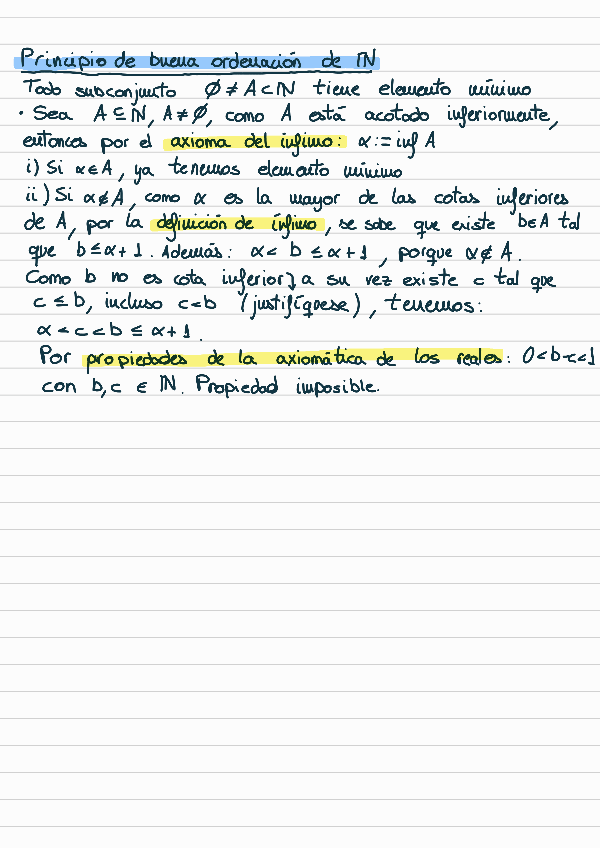 Principio de buena ordenación de ℕ
Todo subconjunto ∅ ≠ A ⊂ ℕ tiene elemento mínimo
• Sea A ⊆ ℕ, A ≠ ∅, como A está acotado inferiormente,
entonces por el axioma del ínfimo: α := inf A
i) Si α ∈ A, ya tenemos elemento mínimo
ii) Si α ∉ A, como α es la mayor de las cotas inferiores
de A, por la definición de ínfimo, se sabe que existe b ∈ A tal
que b ≤ α + 1. Además: α < b ≤ α + 1, porque α ∉ A.
Como b no es cota inferior, a su vez existe c tal que
c ≤ b, incluso c < b (justifíquese), tenemos:
α < c < b ≤ α + 1.
Por propiedades de la axiomática de los reales: 0 < b - c < 1
con b, c ∈ ℕ. Propiedad imposible.